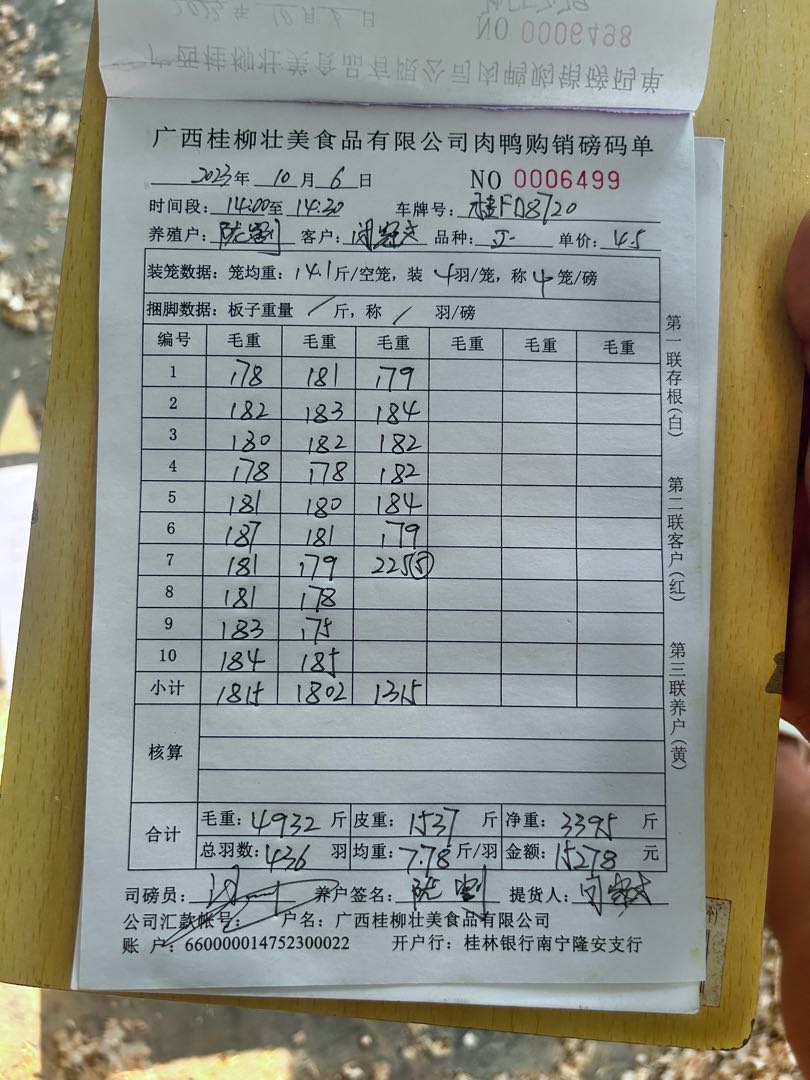 NO 0006498
广西桂柳壮美食品有限公司肉鸭购销磅码单
广西桂柳壮美食品有限公司肉鸭购销磅码单
2023年 10 月 6 日 NO 0006499
时间段: 14:00至 14:30 车牌号: 桂FD8720
养殖户: 客户: 品种: 单价: 4.5
装笼数据: 笼均重: 14.1斤/空笼, 装 4羽/笼, 称 4 笼/磅
捆脚数据: 板子重量 / 斤, 称 / 羽/磅
编号 毛重 毛重 毛重 毛重 毛重 毛重
1 178 181 179
2 182 183 184
3 180 182 182
4 178 178 182
5 181 180 184
6 187 181 179
7 181 179 225⑤
8 181 178
9 183 175
10 184 185
小计 1815 1802 1315
核算
合计 毛重: 4932 斤 皮重: 1537 斤 净重: 3395 斤
总羽数: 436 羽 均重: 7.78 斤/羽 金额: 15278 元
司磅员: 养户签名: 提货人:
公司汇款帐号: 户名: 广西桂柳壮美食品有限公司
账 户: 660000014752300022 开户行: 桂林银行南宁隆安支行
第一联存根(白)
第二联客户(红)
第三联养户(黄)